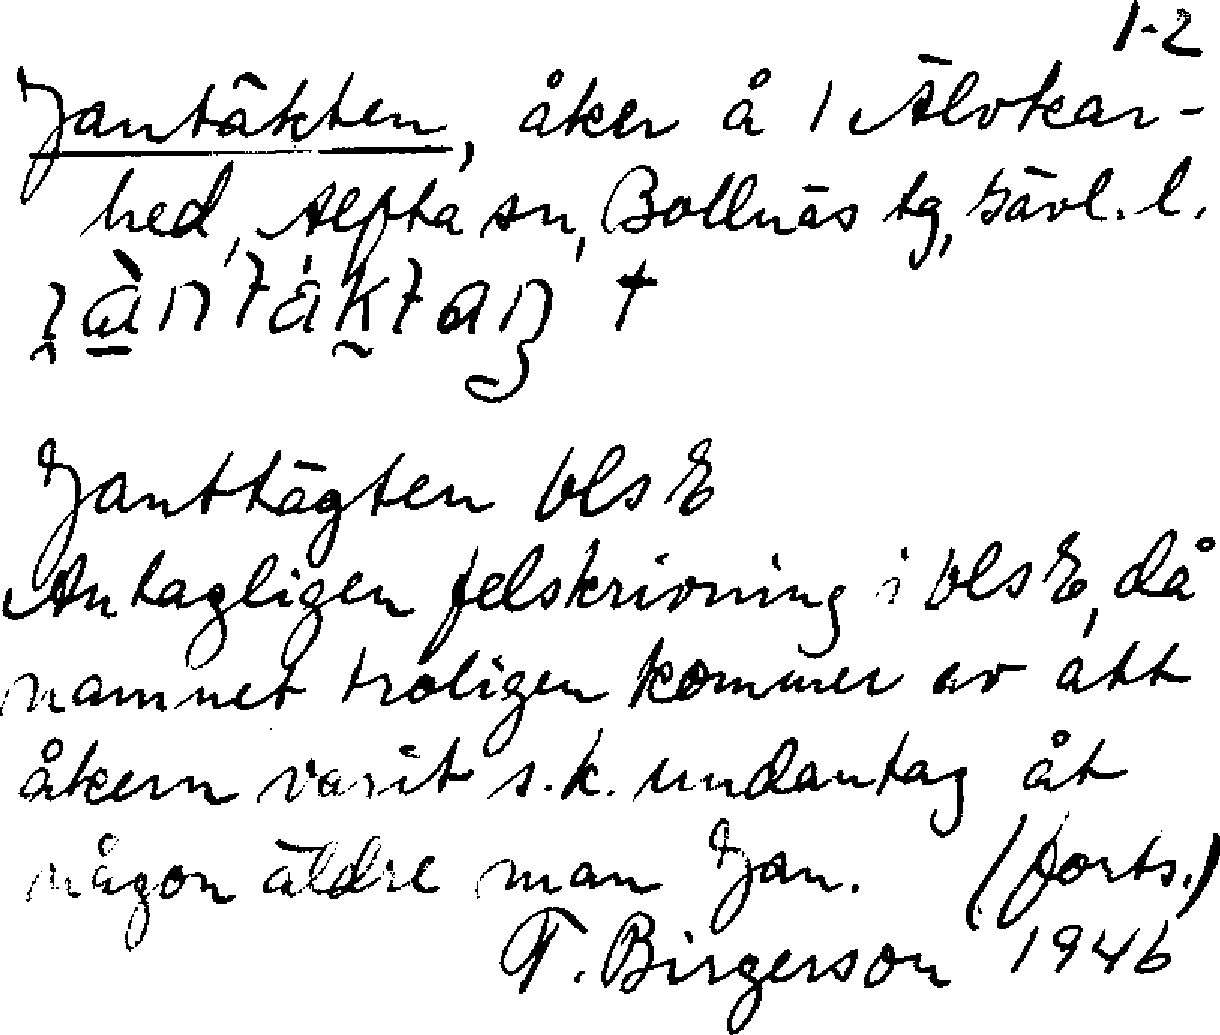 1-2
Jantäkten, åker å 1 Älvkar-
hed, Alfta sn, Bollnäs tg, Gävl. l.
Janttägten vls E
Antagligen felskrivning i vls E, då
namnet troligen kommer av att
åkern varit s.k. undantag åt
någon äldre man Jan. (forts.)
T. Birgerson 1946